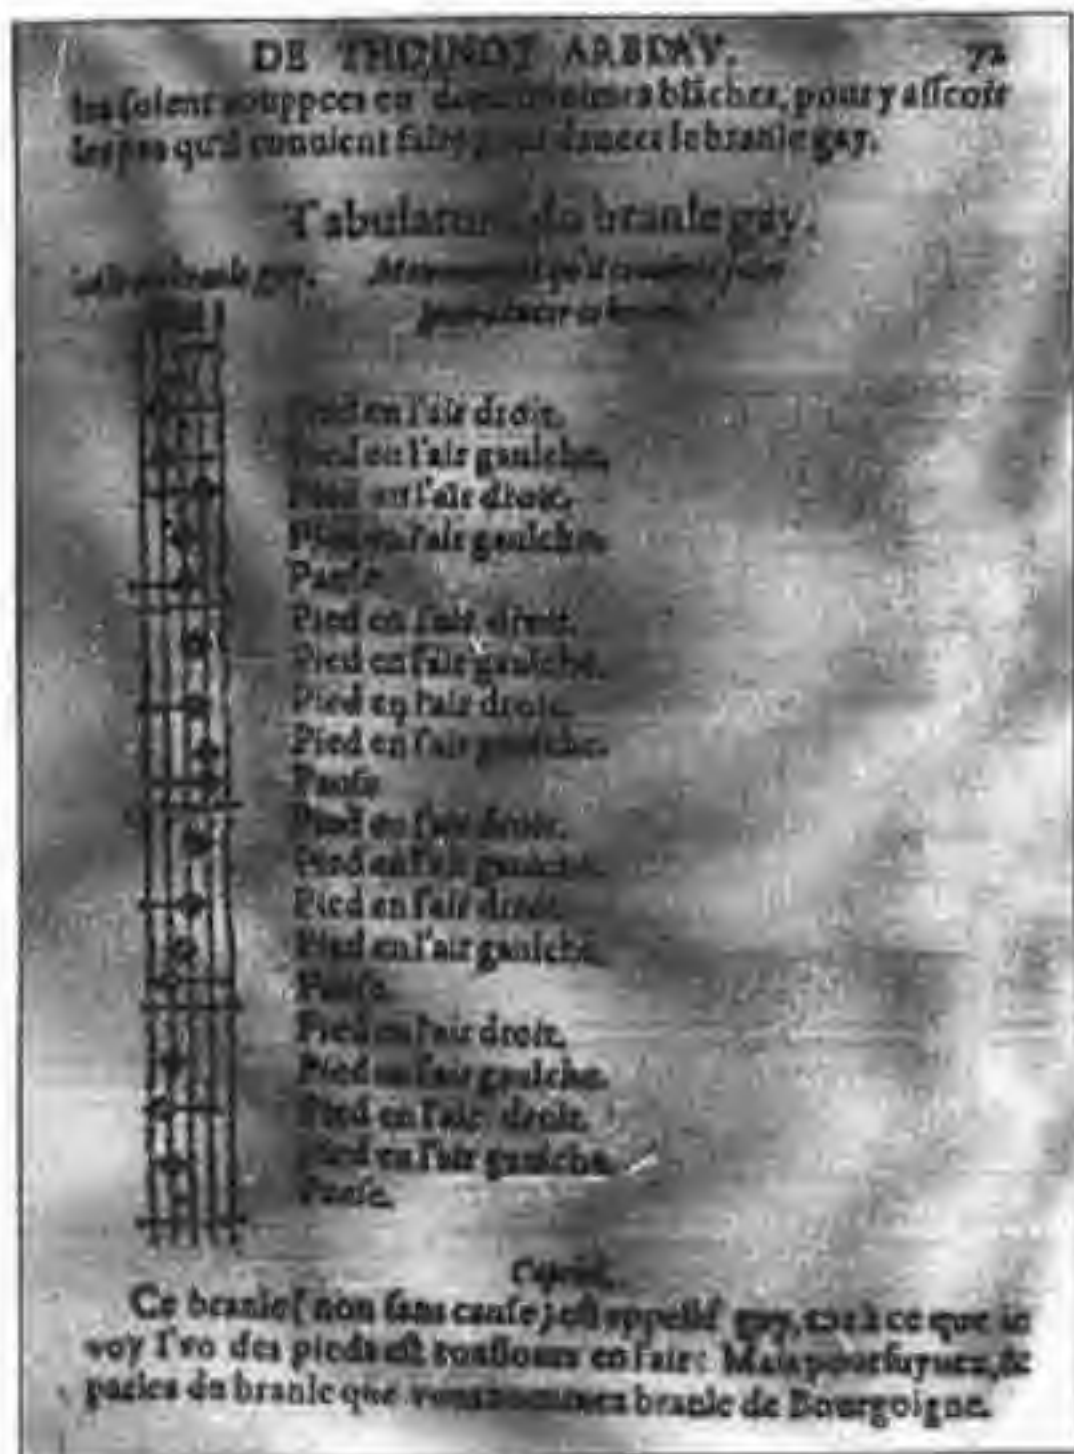 DE THOINOT ARBEAV. 72
les soient couppees en deux minimes blāches, pour y asseoir
les pas qu'il conuient faire pour dancer le branle gay.
Tabulature du branle gay.
Air du branle gay. Mouuements qu'il conuient faire
pour dancer ce branle.
Pied en l'air droit.
Pied en l'air gaulche.
Pied en l'air droit.
Pied en l'air gaulche.
Pause
Pied en l'air droit.
Pied en l'air gaulche.
Pied en l'air droit.
Pied en l'air gaulche.
Pause
Pied en l'air droit.
Pied en l'air gaulche.
Pied en l'air droit.
Pied en l'air gaulche.
Pause.
Pied en l'air droit.
Pied en l'air gaulche.
Pied en l'air droit.
Pied en l'air gaulche.
Pause.
Capriol.
Ce branle (non sans cause) est appellé gay, car à ce que ie
voy l'vn des pieds est tousiours en l'air: Mais poursuyuez, &
parlez du branle que vous nommez branle de Bourgoigne.